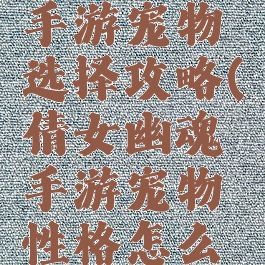 手游宠物
选择攻略(
倩女幽魂
手游宠物
性格怎么